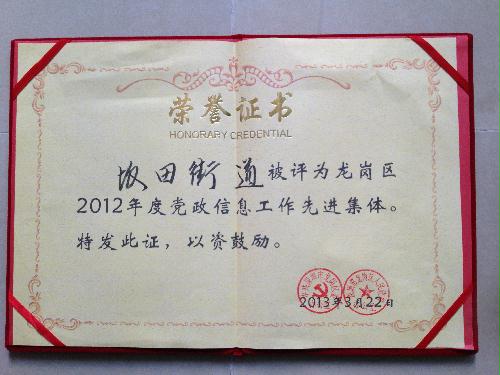 荣誉证书
HONORARY CREDENTIAL
坂田街道被评为龙岗区
2012年度党政信息工作先进集体。
特发此证，以资鼓励。
2013年3月22日